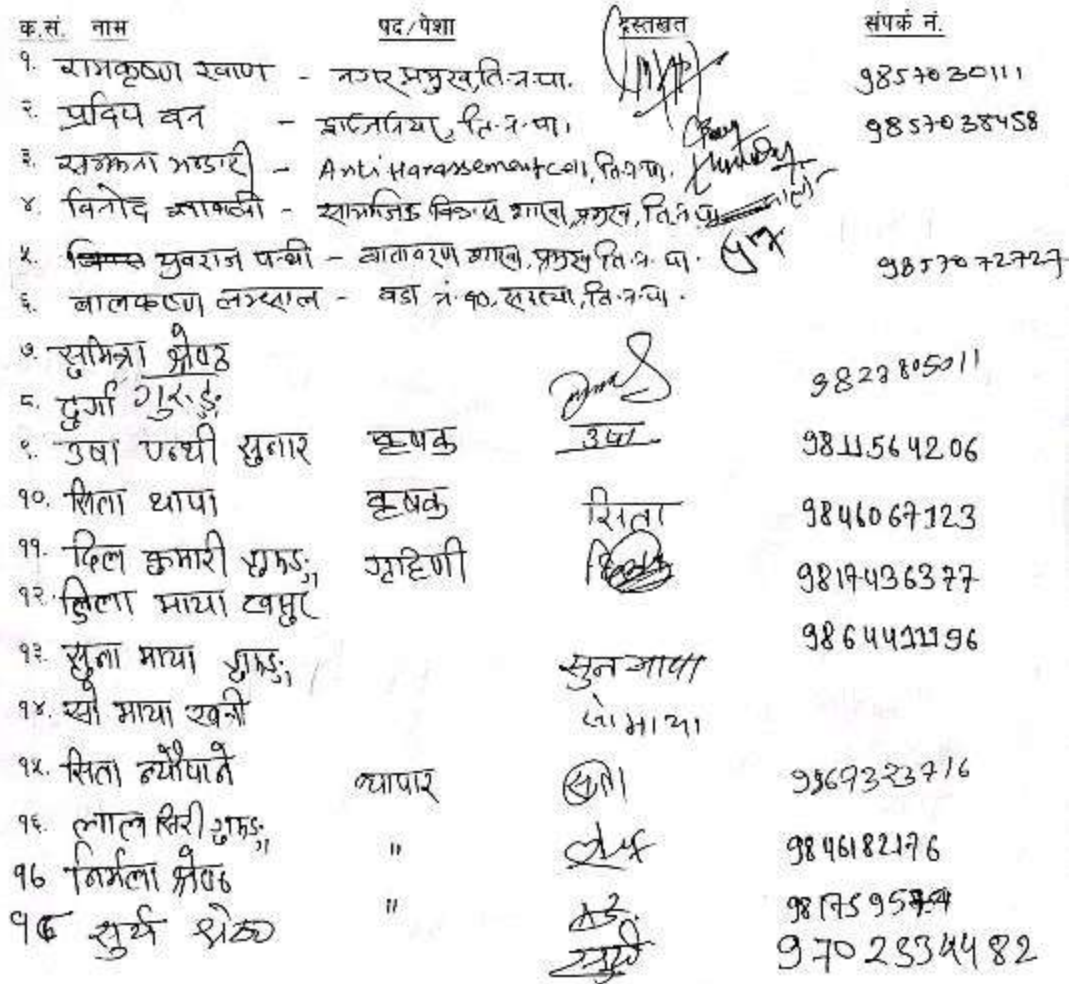 क.सं. नाम पद/पेशा दस्तखत संपर्क नं.
१. रामकृष्ण खाण - नगर प्रमुख, ति.न.पा. 9857030111
२. प्रदिप वन - ति.न.पा. 9857038458
३. सम्झना भण्डारी - Anti Harassement cell, ति.न.पा.
४. विनोद - सामाजिक विकास शाखा, प्रमुख, ति.न.पा.
५. युवराज पन्थी - वातावरण शाखा, प्रमुख ति.न.पा. 9857072727
६. बालकृष्ण लम्साल - वडा नं. १०, सदस्य, ति.न.पा.
७. सुमित्रा श्रेष्ठ
८. दुर्गा गुरुङ 9827805011
९. उषा पन्थी सुनार कृषक उषा 9811564206
१०. सिता थापा कृषक सिता 9846067123
११. दिल कुमारी गुरुङ गृहिणी 9817436377
१२. माया 9864411196
१३. सुना माया गुरुङ सुन माया
१४. सो माया खत्री सो माया
१५. सिता न्यौपाने व्यापार सिता 9867323716
१६. लाल सिरी गुरुङ " 9846182176
१७ निर्मला श्रेष्ठ "
१८ सुर्य श्रेष्ठ सुर्य